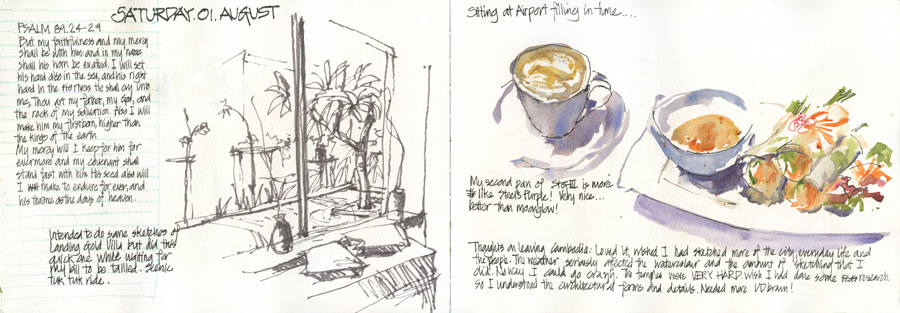 SATURDAY. 01. AUGUST
PSALM 89. 24-29
But my faithfulness and my mercy
shall be with him: and in my name
shall his horn be exalted. I will set
his hand also in the sea, and his right
hand in the rivers. He shall cry unto
me, Thou art my father, my God, and
the rock of my salvation. Also I will
make him my firstborn, higher than
the kings of the earth.
My mercy will I keep for him for
evermore and my covenant shall
stand fast with him. His seed also will
I make to endure for ever, and
his throne as the days of heaven.
Intended to do some sketches of
Landing Gold Villa but did this
quick one while waiting for
my bill to be tallied. Scenic
tuk tuk ride.
Sitting at Airport filling in time....
My second pan of is more
like Steel & Purple! Very nice...
better than moonglow!
Thoughts on leaving Cambodia: Loved it, wished I had sketched more of the city, everyday life and
the people. The weather seriously affected the watercolour and the amount of sketching that I
did. No way I could go crazy. The temples were VERY HARD. Wish I had done some research
so I understood the architectural forms and details. Needed more !